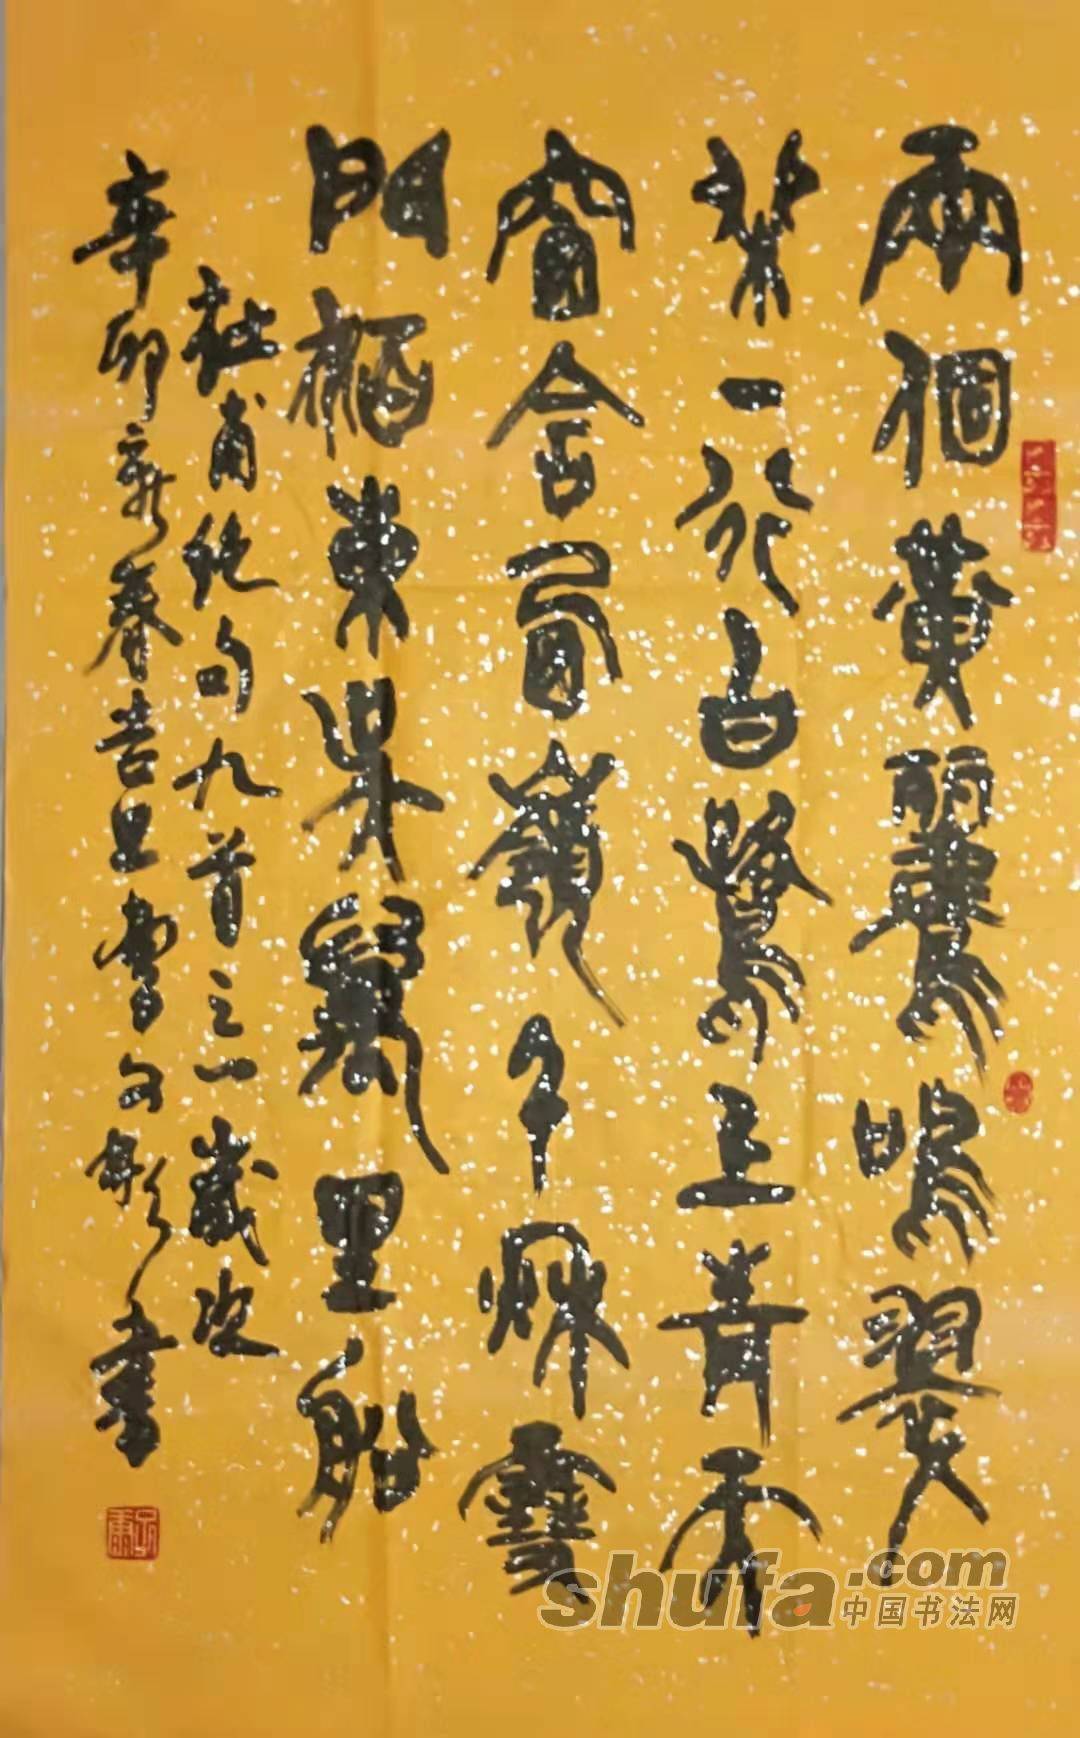 兩個黄鸝鳴翠
柳一行白鷺上青天
窗含西嶺千秋雪
門泊東吴萬里船
杜甫绝句九首之一歲次
辛卯新春吉旦曹文彬書
shufa.com
中国书法网